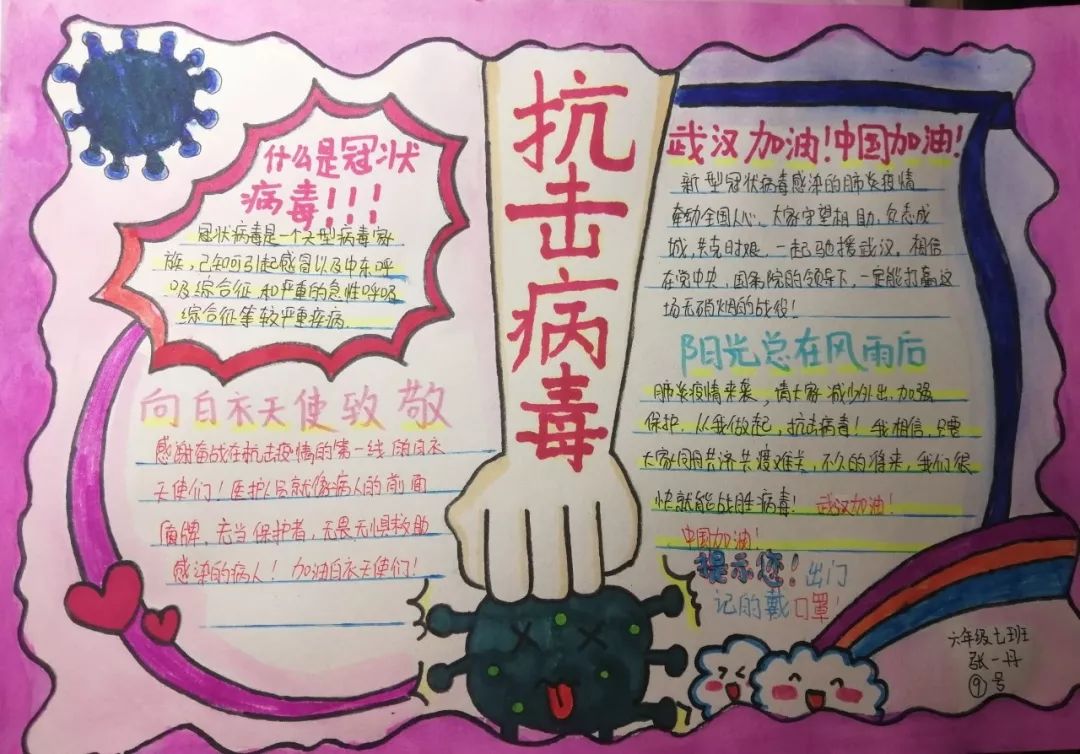 什么是冠状
病毒!!!
冠状病毒是一个大型病毒家
族，己知可引起感冒以及中东呼
吸综合征和严重的急性呼吸
综合征等较严重疾病.
向白衣天使致敬
感谢奋战在抗击疫情的第一线的白衣
天使们！医护人员就像病人的前面
盾牌，充当保护者，无畏无惧救助
感染的病人！加油白衣天使们！
抗
击
病
毒
武汉加油!中国加油!
新型冠状病毒感染的肺炎疫情
牵动全国人心、大家守望相助、众志成
城,共克时艰、一起驰援武汉。相信
在党中央、国务院的领导下，一定能打赢这
场无硝烟的战役！
阳光总在风雨后
肺炎疫情来袭，请大家减少外出、加强
保护、从我做起，抗击病毒！我相信，只要
大家同舟共济共渡难关，不久的将来，我们很
快就能战胜病毒！武汉加油！
中国加油！
提示您！出门
记的戴口罩！
六年级七班
张一丹
⑨号